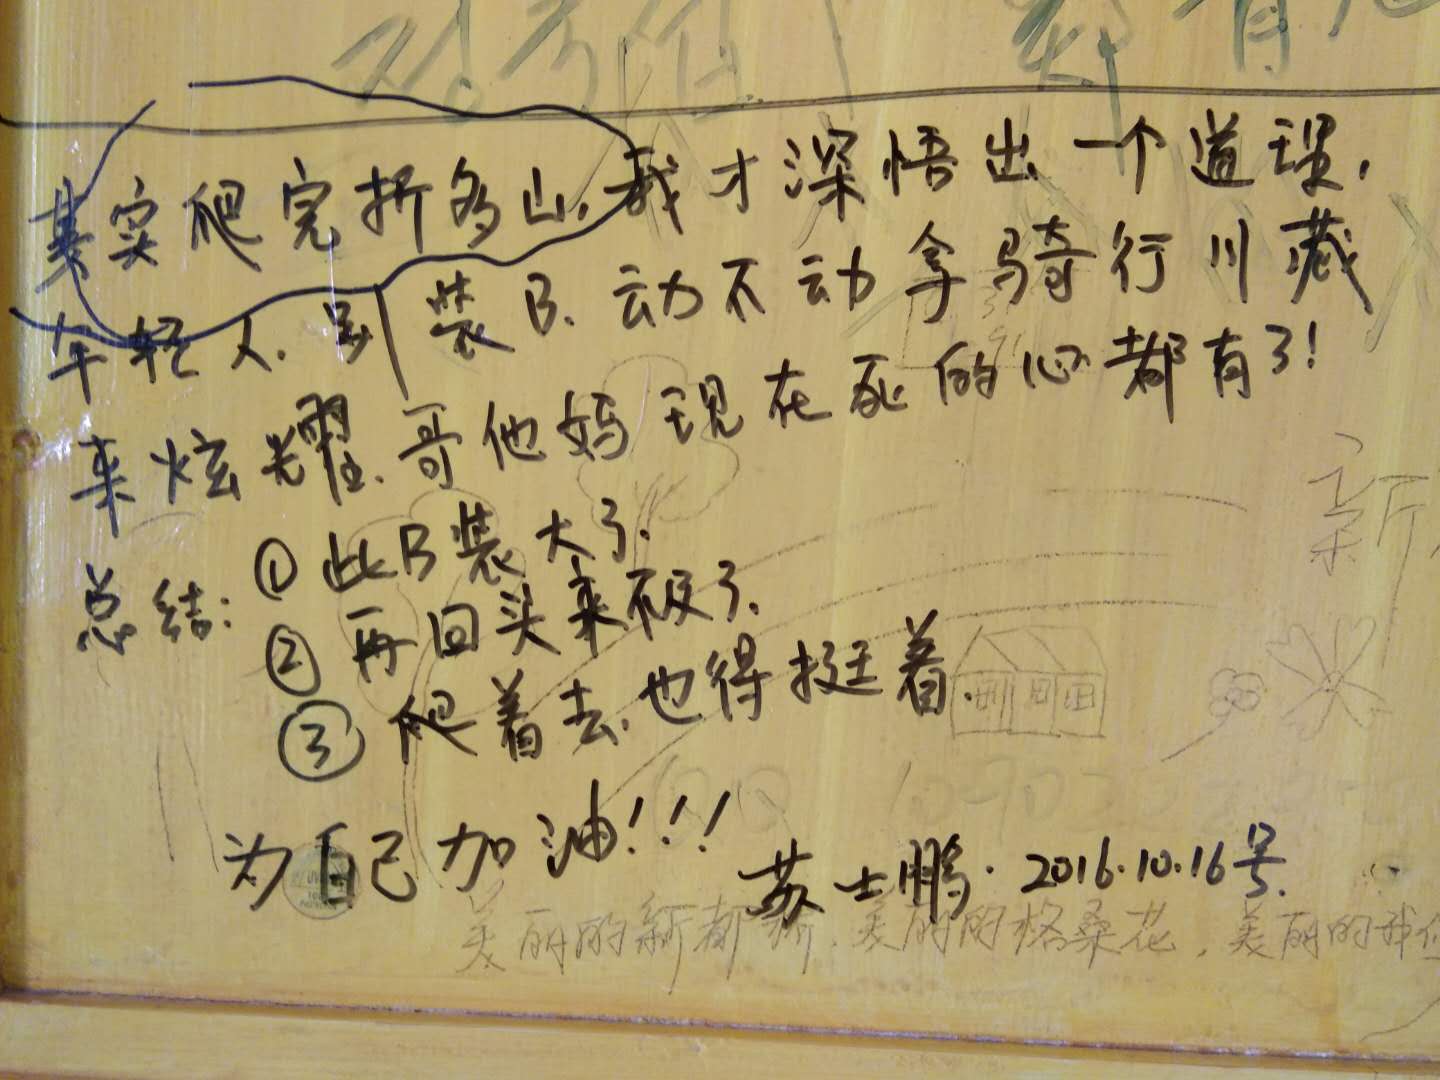 其实爬完折多山,我才深悟出一个道理,
年轻人.别装B.动不动拿骑行川藏
来炫耀.哥他妈现在死的心都有了!
总结:①此B装大了.
②再回头来不及了.
③爬着去.也得挺着.
为自己加油!!!
苏士鹏.2016.10.16号.
美丽的新都桥,美丽的格桑花,美丽的我们